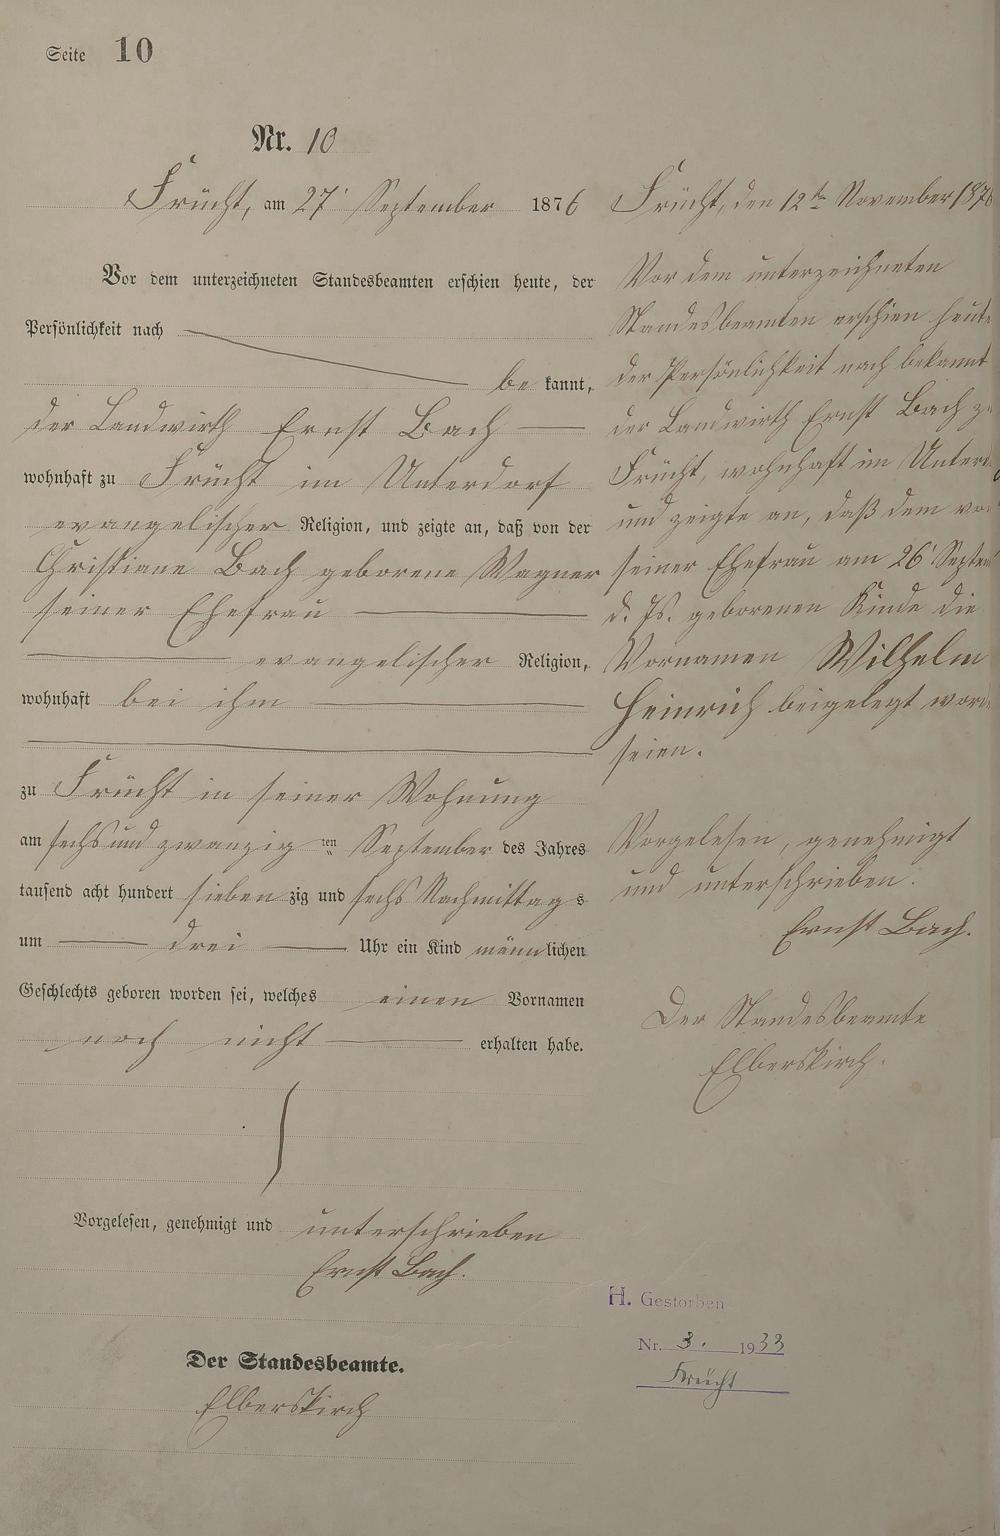 Seite 10
Nr. 10
Frücht, am 27' September 1876
Vor dem unterzeichneten Standesbeamten erschien heute, der
Persönlichkeit nach
be kannt,
der Landwirth Ernst Bach
wohnhaft zu Frücht im Unterdorf
evangelischer Religion, und zeigte an, daß von der
Christiane Bach geborene Wagner
seiner Ehefrau
evangelischer Religion,
wohnhaft bei ihm
zu Frücht in seiner Wohnung
am sechs und zwanzig ten September des Jahres
tausend acht hundert sieben zig und sechs Nachmittag s
um drei Uhr ein Kind männlichen
Geschlechts geboren worden sei, welches einen Vornamen
noch nicht erhalten habe.
Vorgelesen, genehmigt und unterschrieben
Ernst Bach.
Der Standesbeamte.
Elberskirch
Frücht, den 12te November 1876
Vor dem unterzeichneten
Standesbeamten erschien heute
der Persönlichkeit nach bekannt
der Landwirth Ernst Bach zu
Frücht, wohnhaft im Unterd
und zeigte an, daß dem von
seiner Ehefrau am 26' Septem
d. Js. geborenen Kinde die
Vornamen Wilhelm
Heinrich beigelegt word
seien.
Vorgelesen, genehmigt
und unterschrieben.
Ernst Bach.
Der Standesbeamte
Elberskirch.
H. Gestorben
Nr. 3. 1933
Frücht